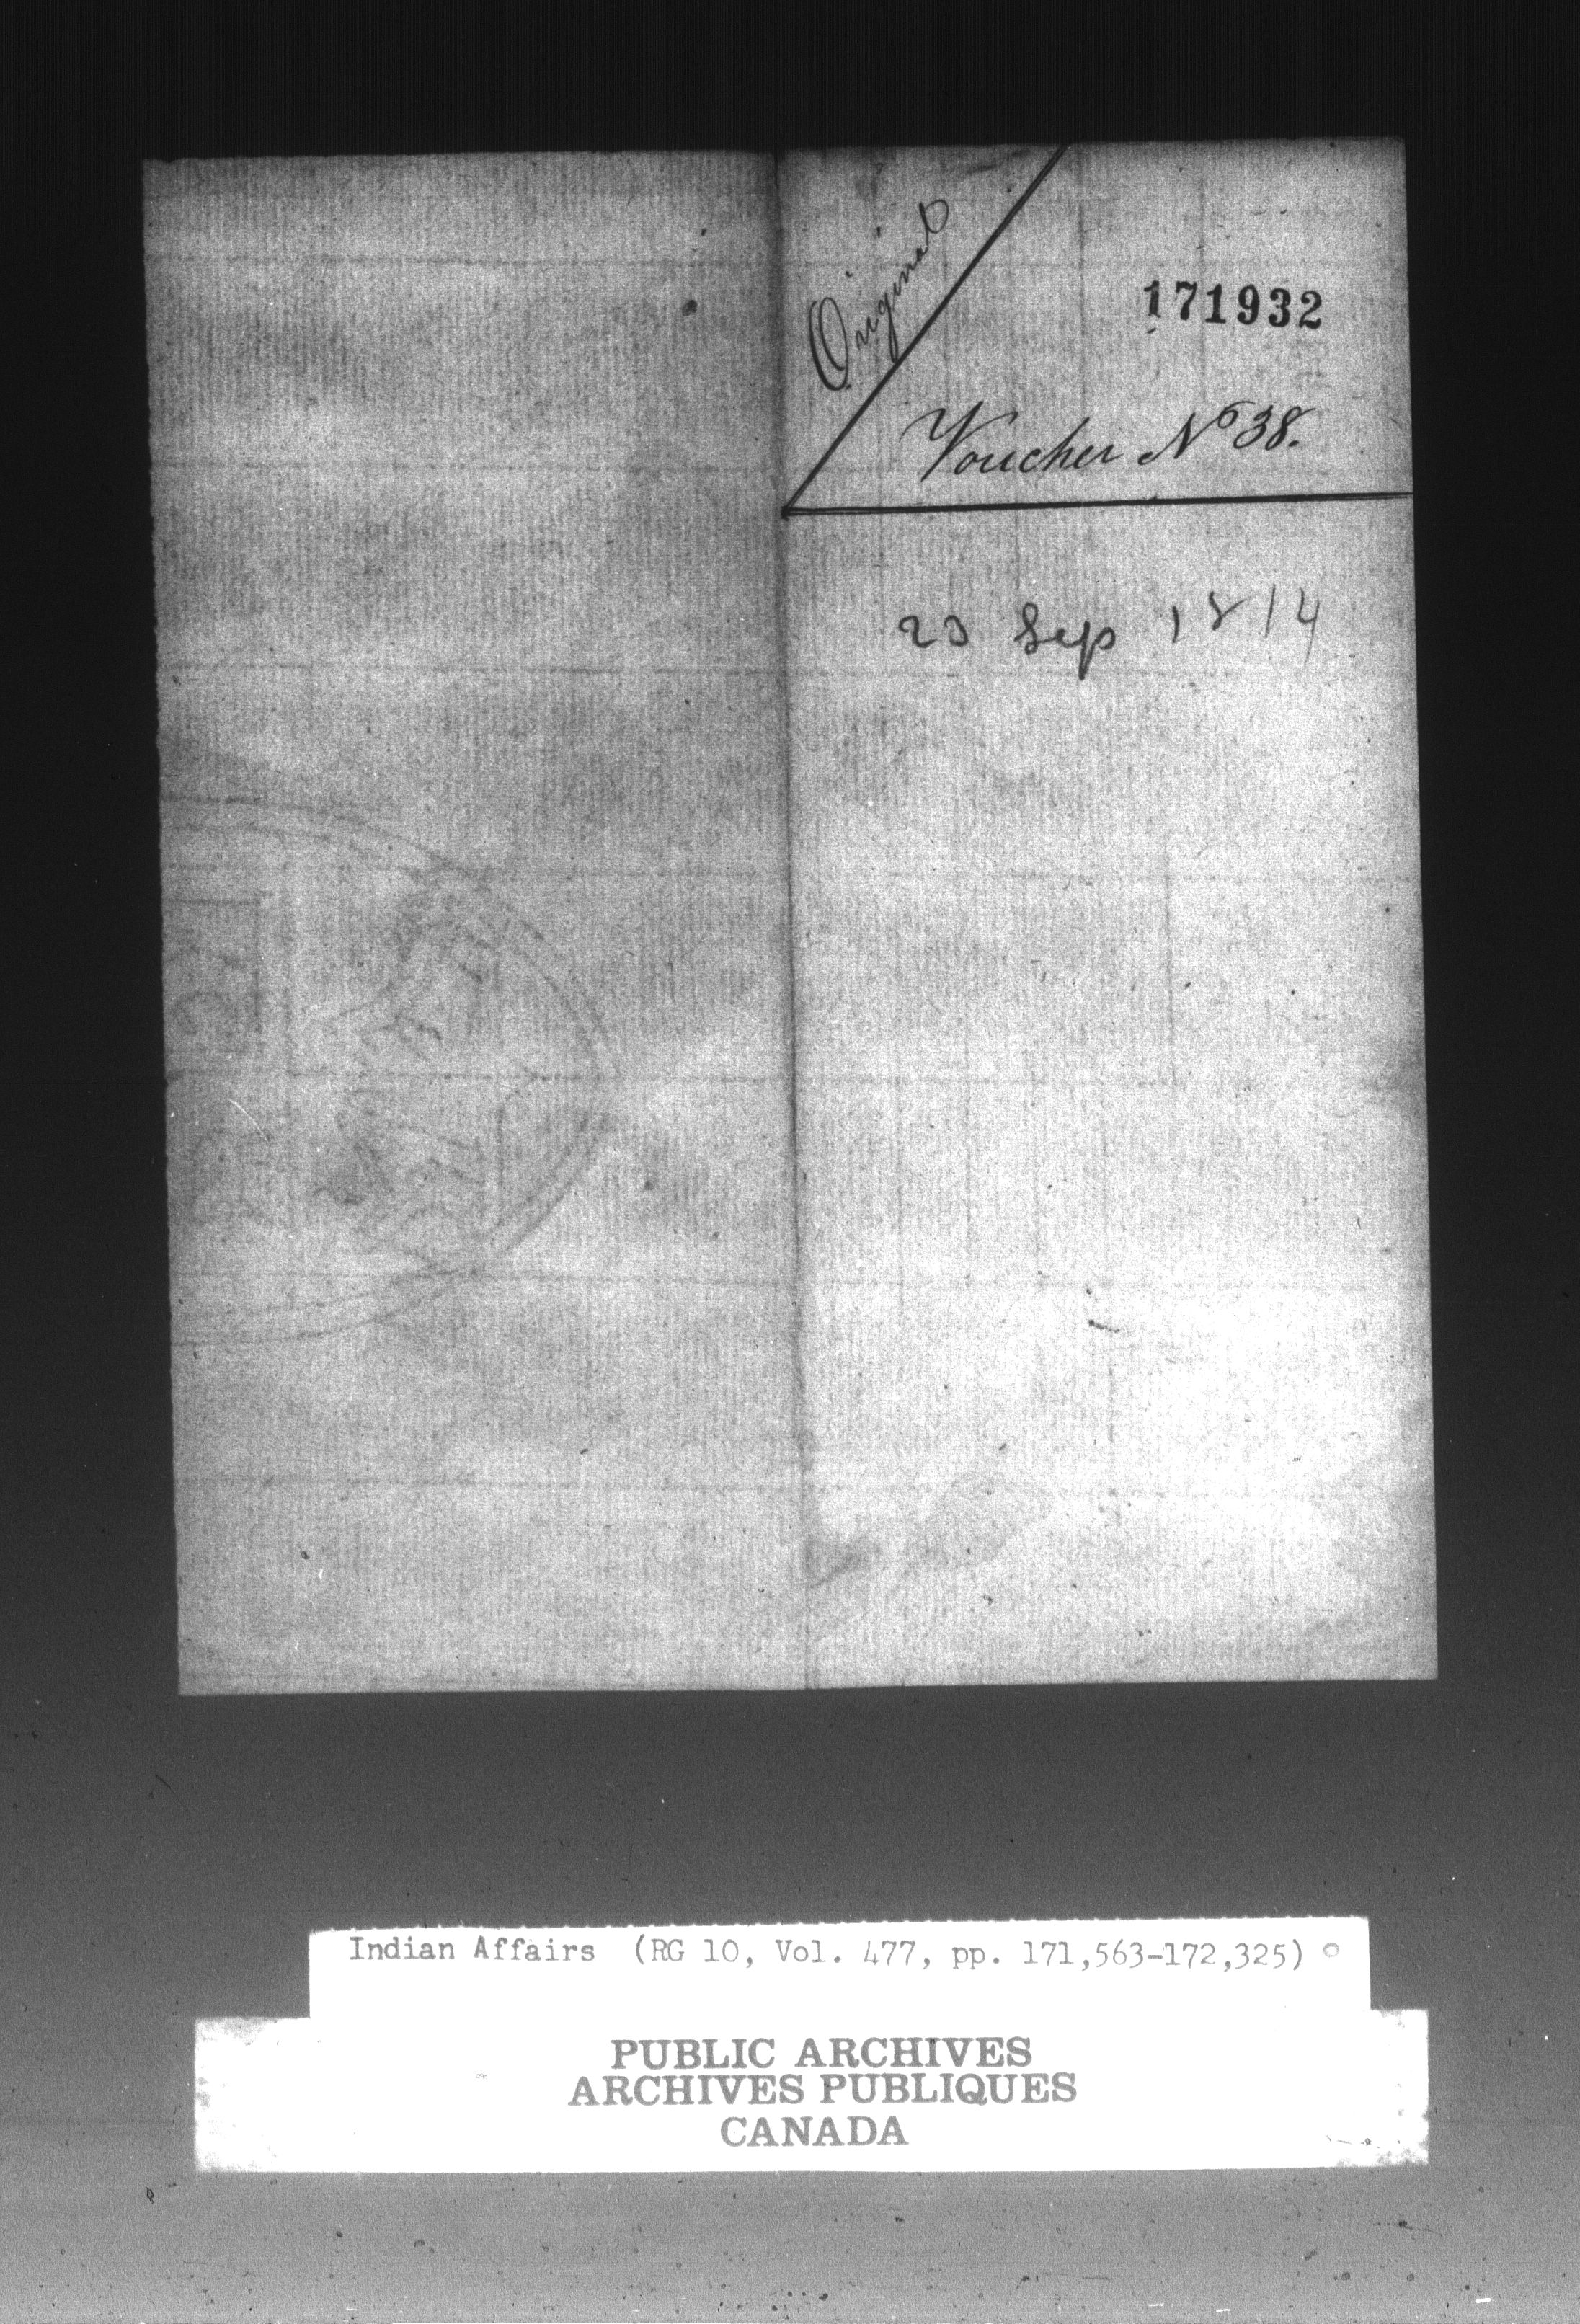 Original
171932
Voucher No 38.
23 Sep 1814
Indian Affairs (RG 10, Vol. 477, pp. 171,563-172,325)
PUBLIC ARCHIVES
ARCHIVES PUBLIQUES
CANADA